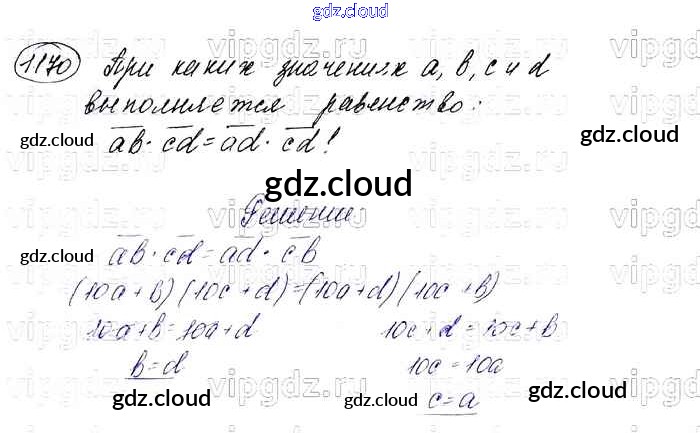 gdz.cloud
1170 При каких значениях a, b, c и d
выполняется равенство:
ab · cd = ad · cd!
gdz.cloud
gdz.cloud
gdz.cloud
gdz.cloud
Решение
gdz.cloud ab · cd = ad · cb
(10a + b) (10c + d) = (10a + d) (10c + b)
10a + b = 10a + d 10c + d = 10c + b
b = d 10c = 10a
c = a
gdz.cloud gdz.cloud